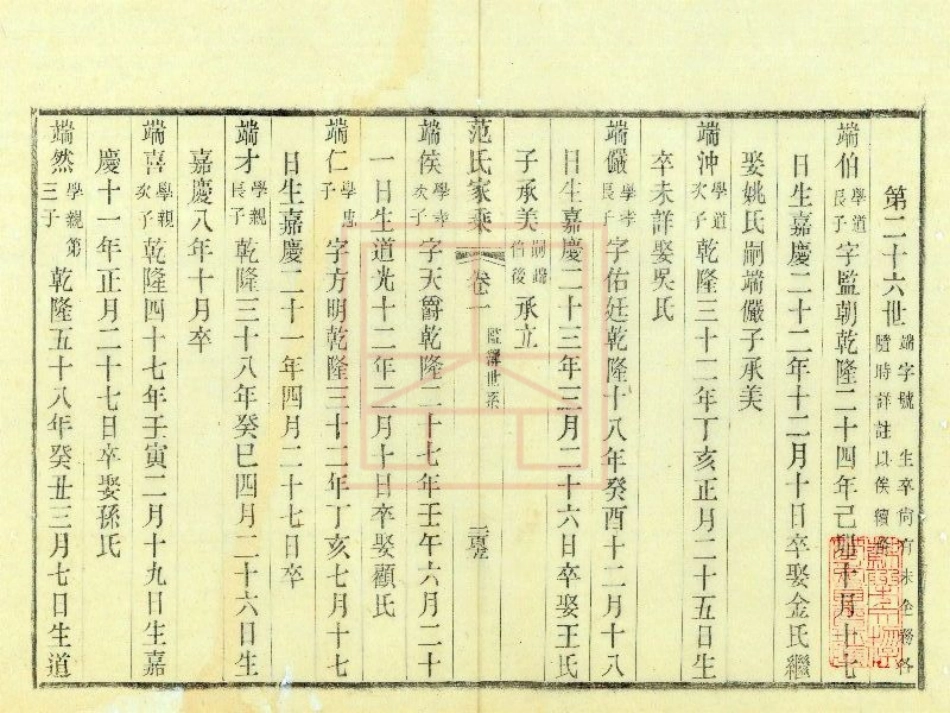 第二十六世 端字號 生卒尚有未全務各
隨時詳註以俟續
端伯 學道長子 字監朝乾隆二十四年己卯十月十七
日生嘉慶二十二年十二月十日卒娶金氏繼
娶姚氏嗣端儼子承美
端沖 學道次子 乾隆三十二年丁亥正月二十五日生
卒未詳娶吳氏
端儼 學孝長子 字佑廷乾隆十八年癸酉十二月十八
日生嘉慶二十三年三月二十六日卒娶王氏
子承美 嗣端伯後 承立
范氏家乘 卷十 監簿世系
端侯 學孝次子 字天爵乾隆二十七年壬午六月二十
一日生道光十二年二月十日卒娶顧氏
端仁 學忠子 字方明乾隆三十二年丁亥七月十七
日生嘉慶二十一年四月二十七日卒
端才 學親長子 乾隆三十八年癸巳四月二十六日生
嘉慶八年十月卒
端喜 學親次子 乾隆四十七年壬寅二月十九日生嘉
慶十一年正月二十七日卒娶孫氏
端然 學親第三子 乾隆五十八年癸丑三月七日生道